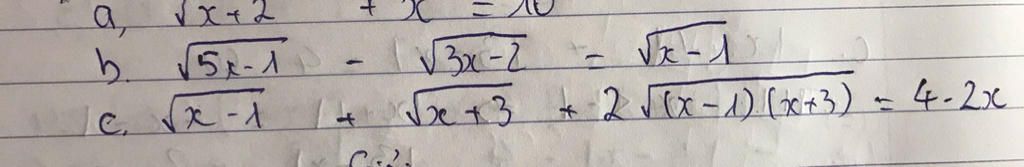 a, √x+2 + x = 10
b. √(5x-1) - √(3x-2) = √(x-1)
c. √(x-1) + √(x+3) + 2√((x-1)(x+3)) = 4-2x